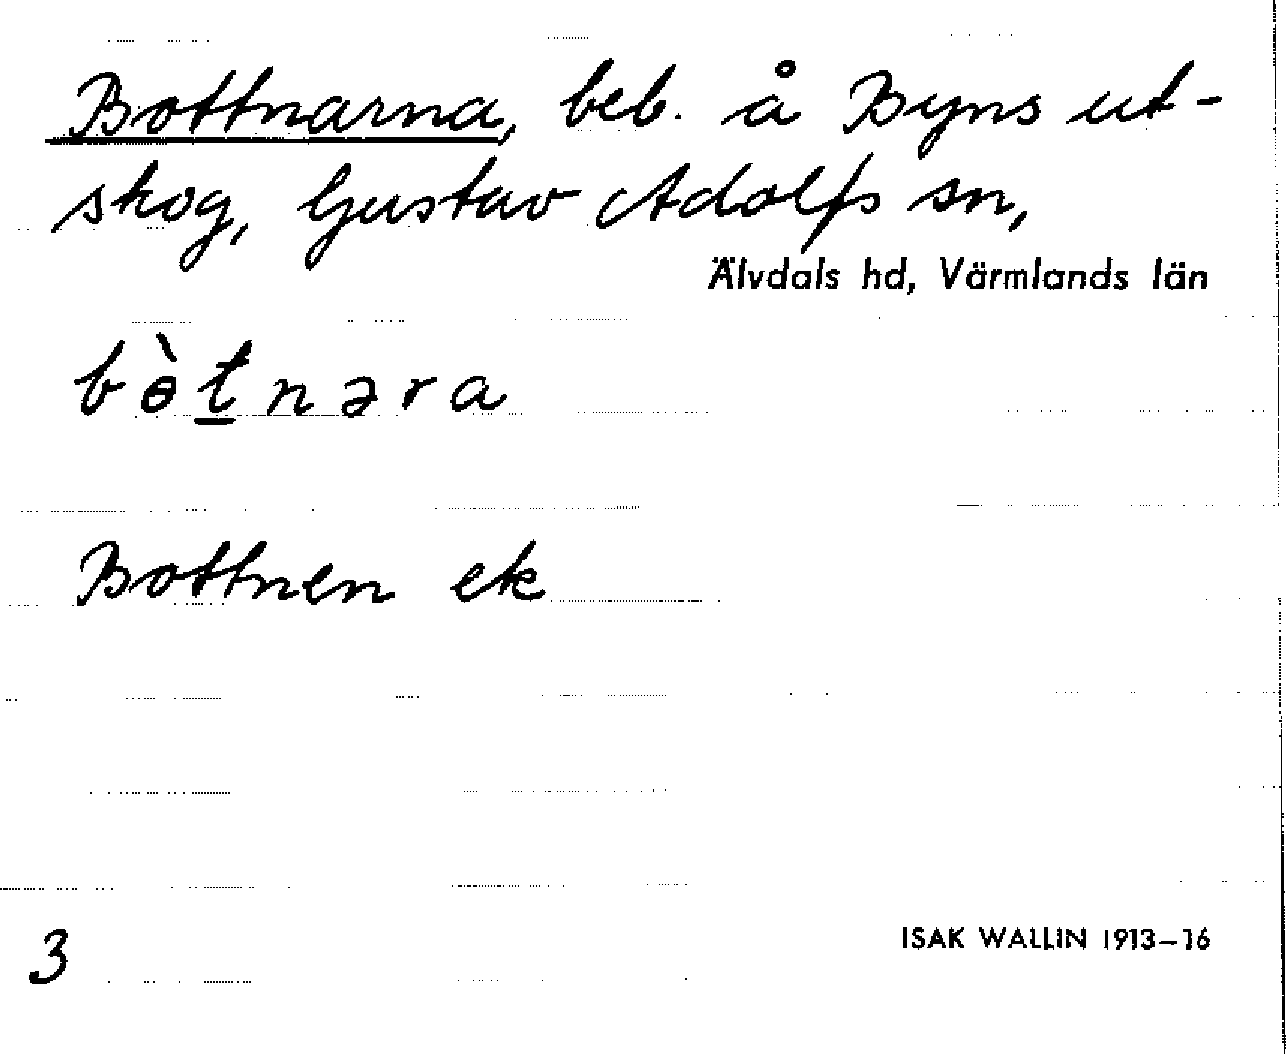 Bottnarna, beb. å Byns ut-
skog, Gustav Adolfs sn,
Älvdals hd, Värmlands län
bɵ̀t̲nəra
Bottnen ek
3
ISAK WALLIN 1913–16